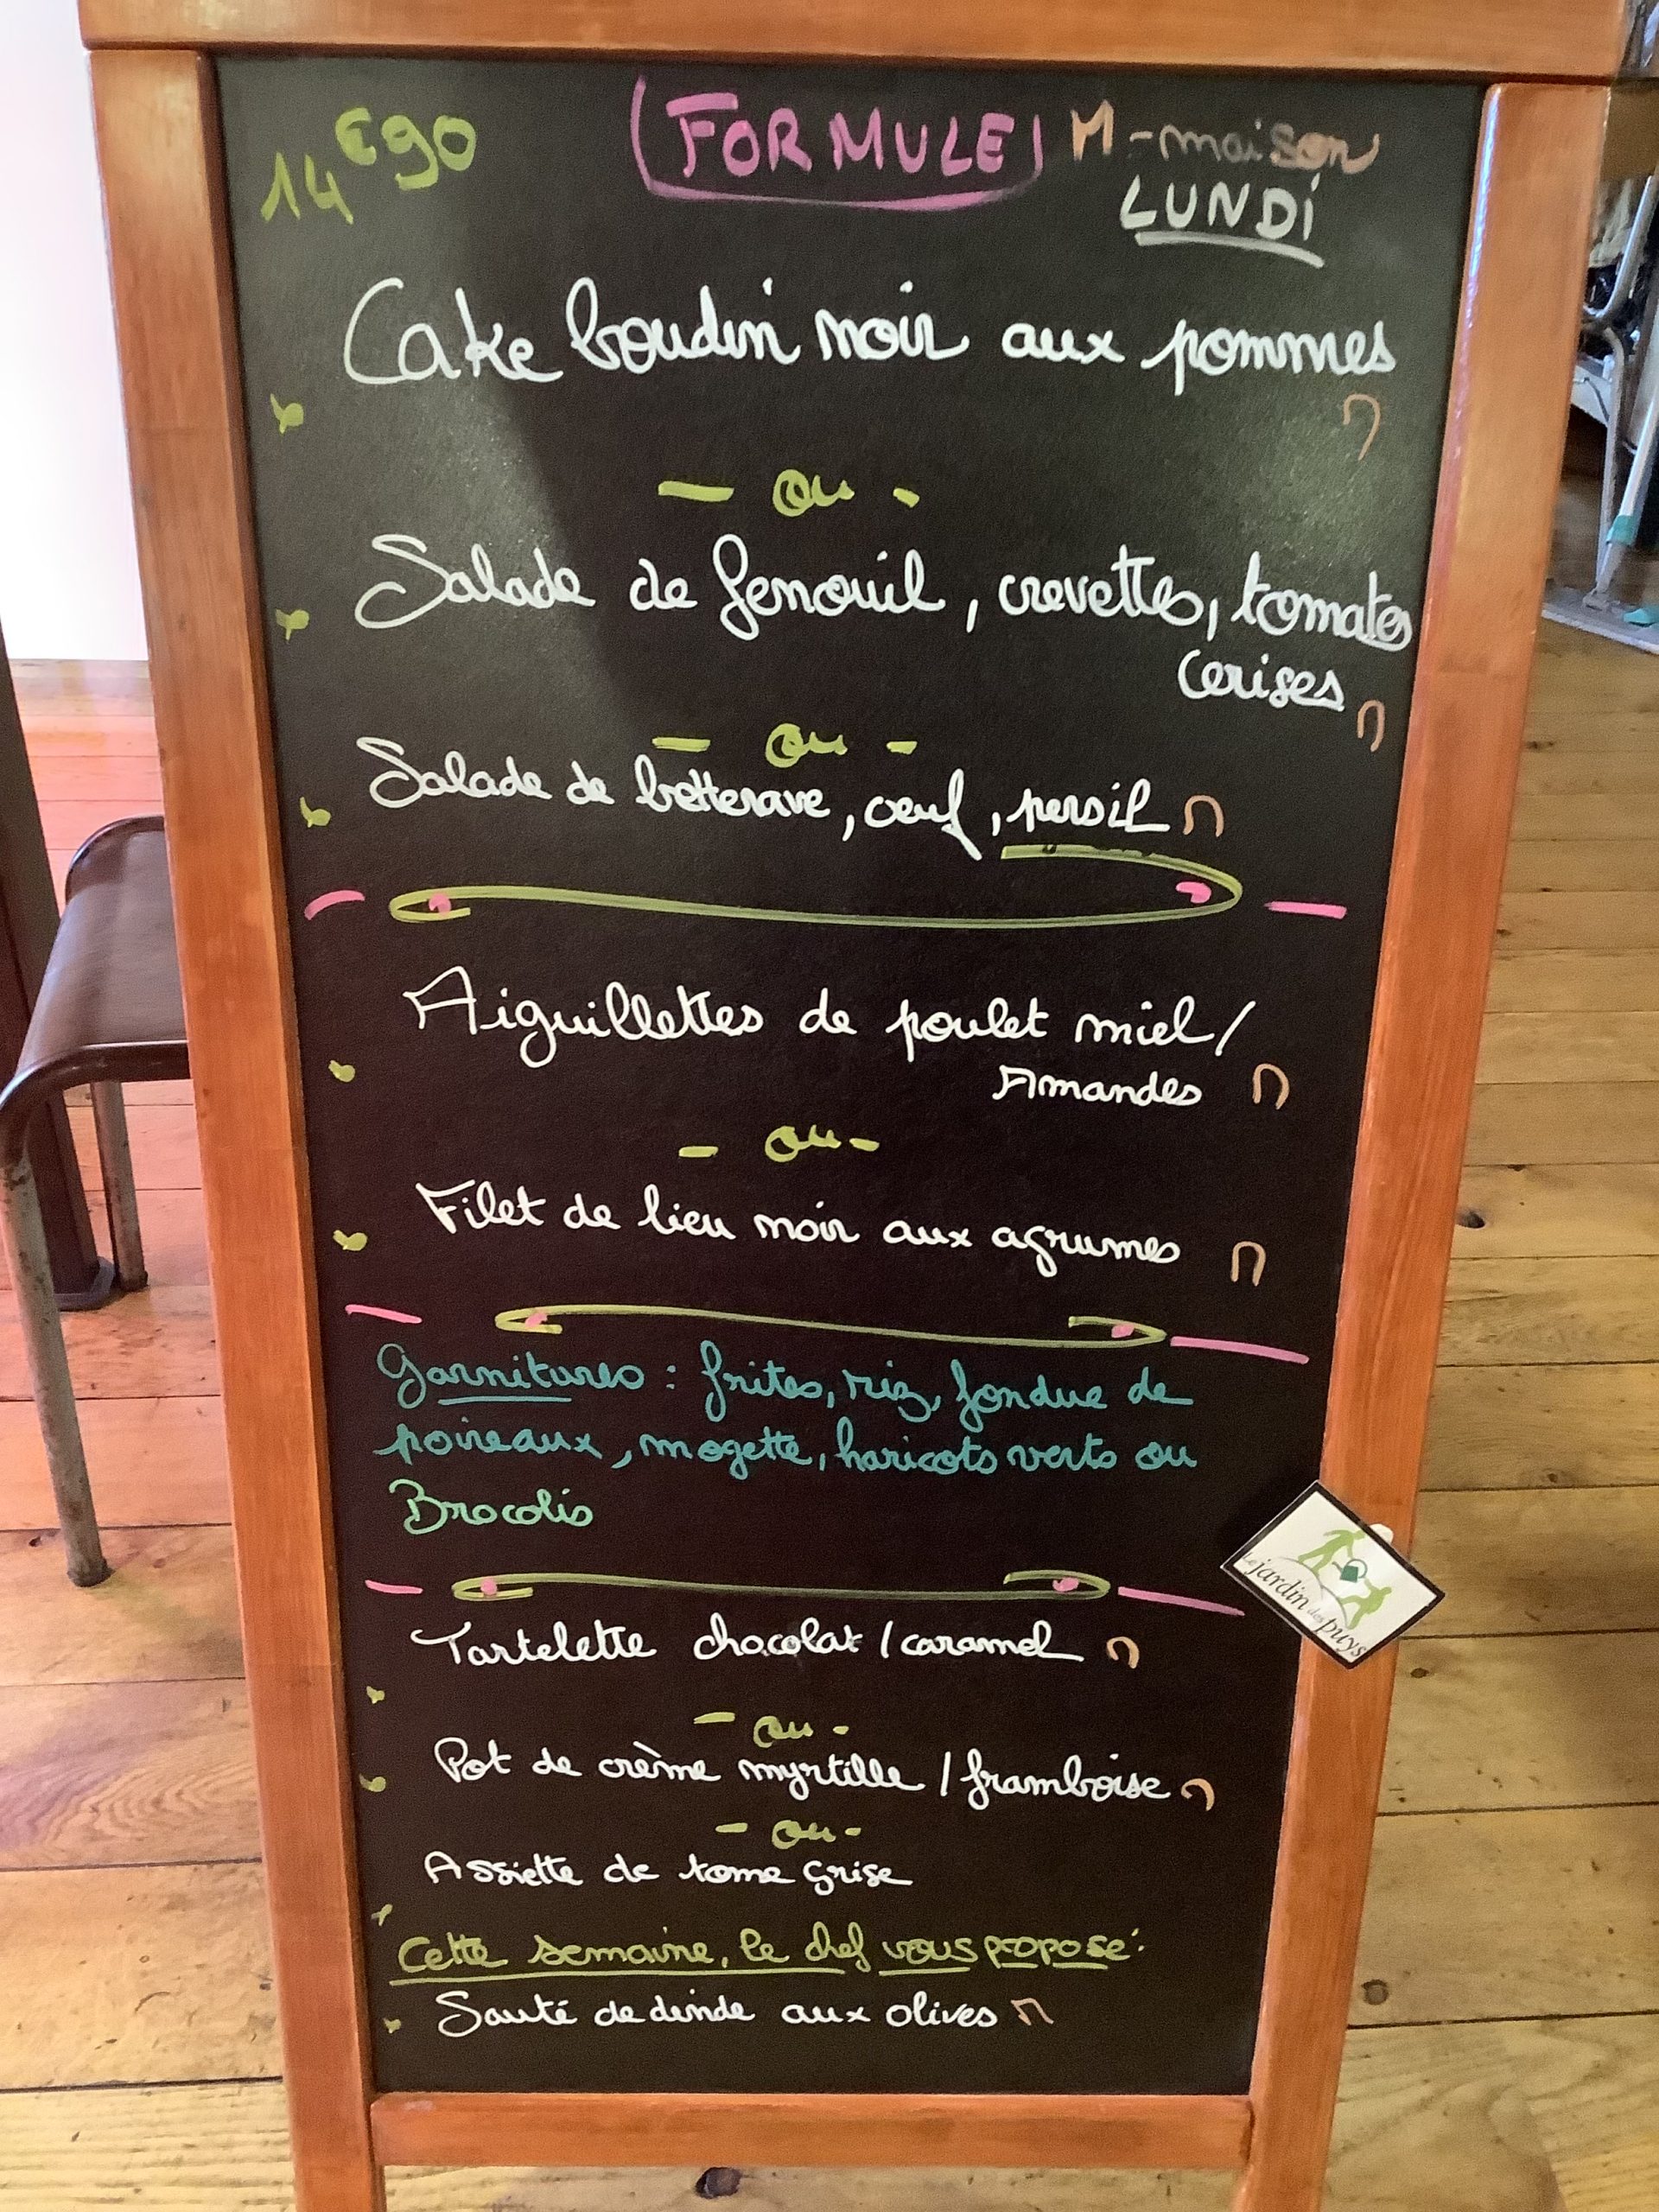 14€90 FORMULE M - maison
LUNDI
Cake boudin noir aux pommes M
- ou -
Salade de fenouil, crevettes, tomates
cerises M
- ou -
Salade de betterave, oeuf, persil M
Aiguillettes de poulet miel /
Amandes M
- ou -
Filet de lieu noir aux agrumes M
Garnitures : frites, riz, fondue de
poireaux, mogette, haricots verts ou
Brocolis
Tartelette chocolat / caramel M
- ou -
Pot de crème myrtille / framboise M
- ou -
Assiette de tome grise
Cette semaine, le chef vous propose :
Sauté de dinde aux olives M
Le jardin des puys